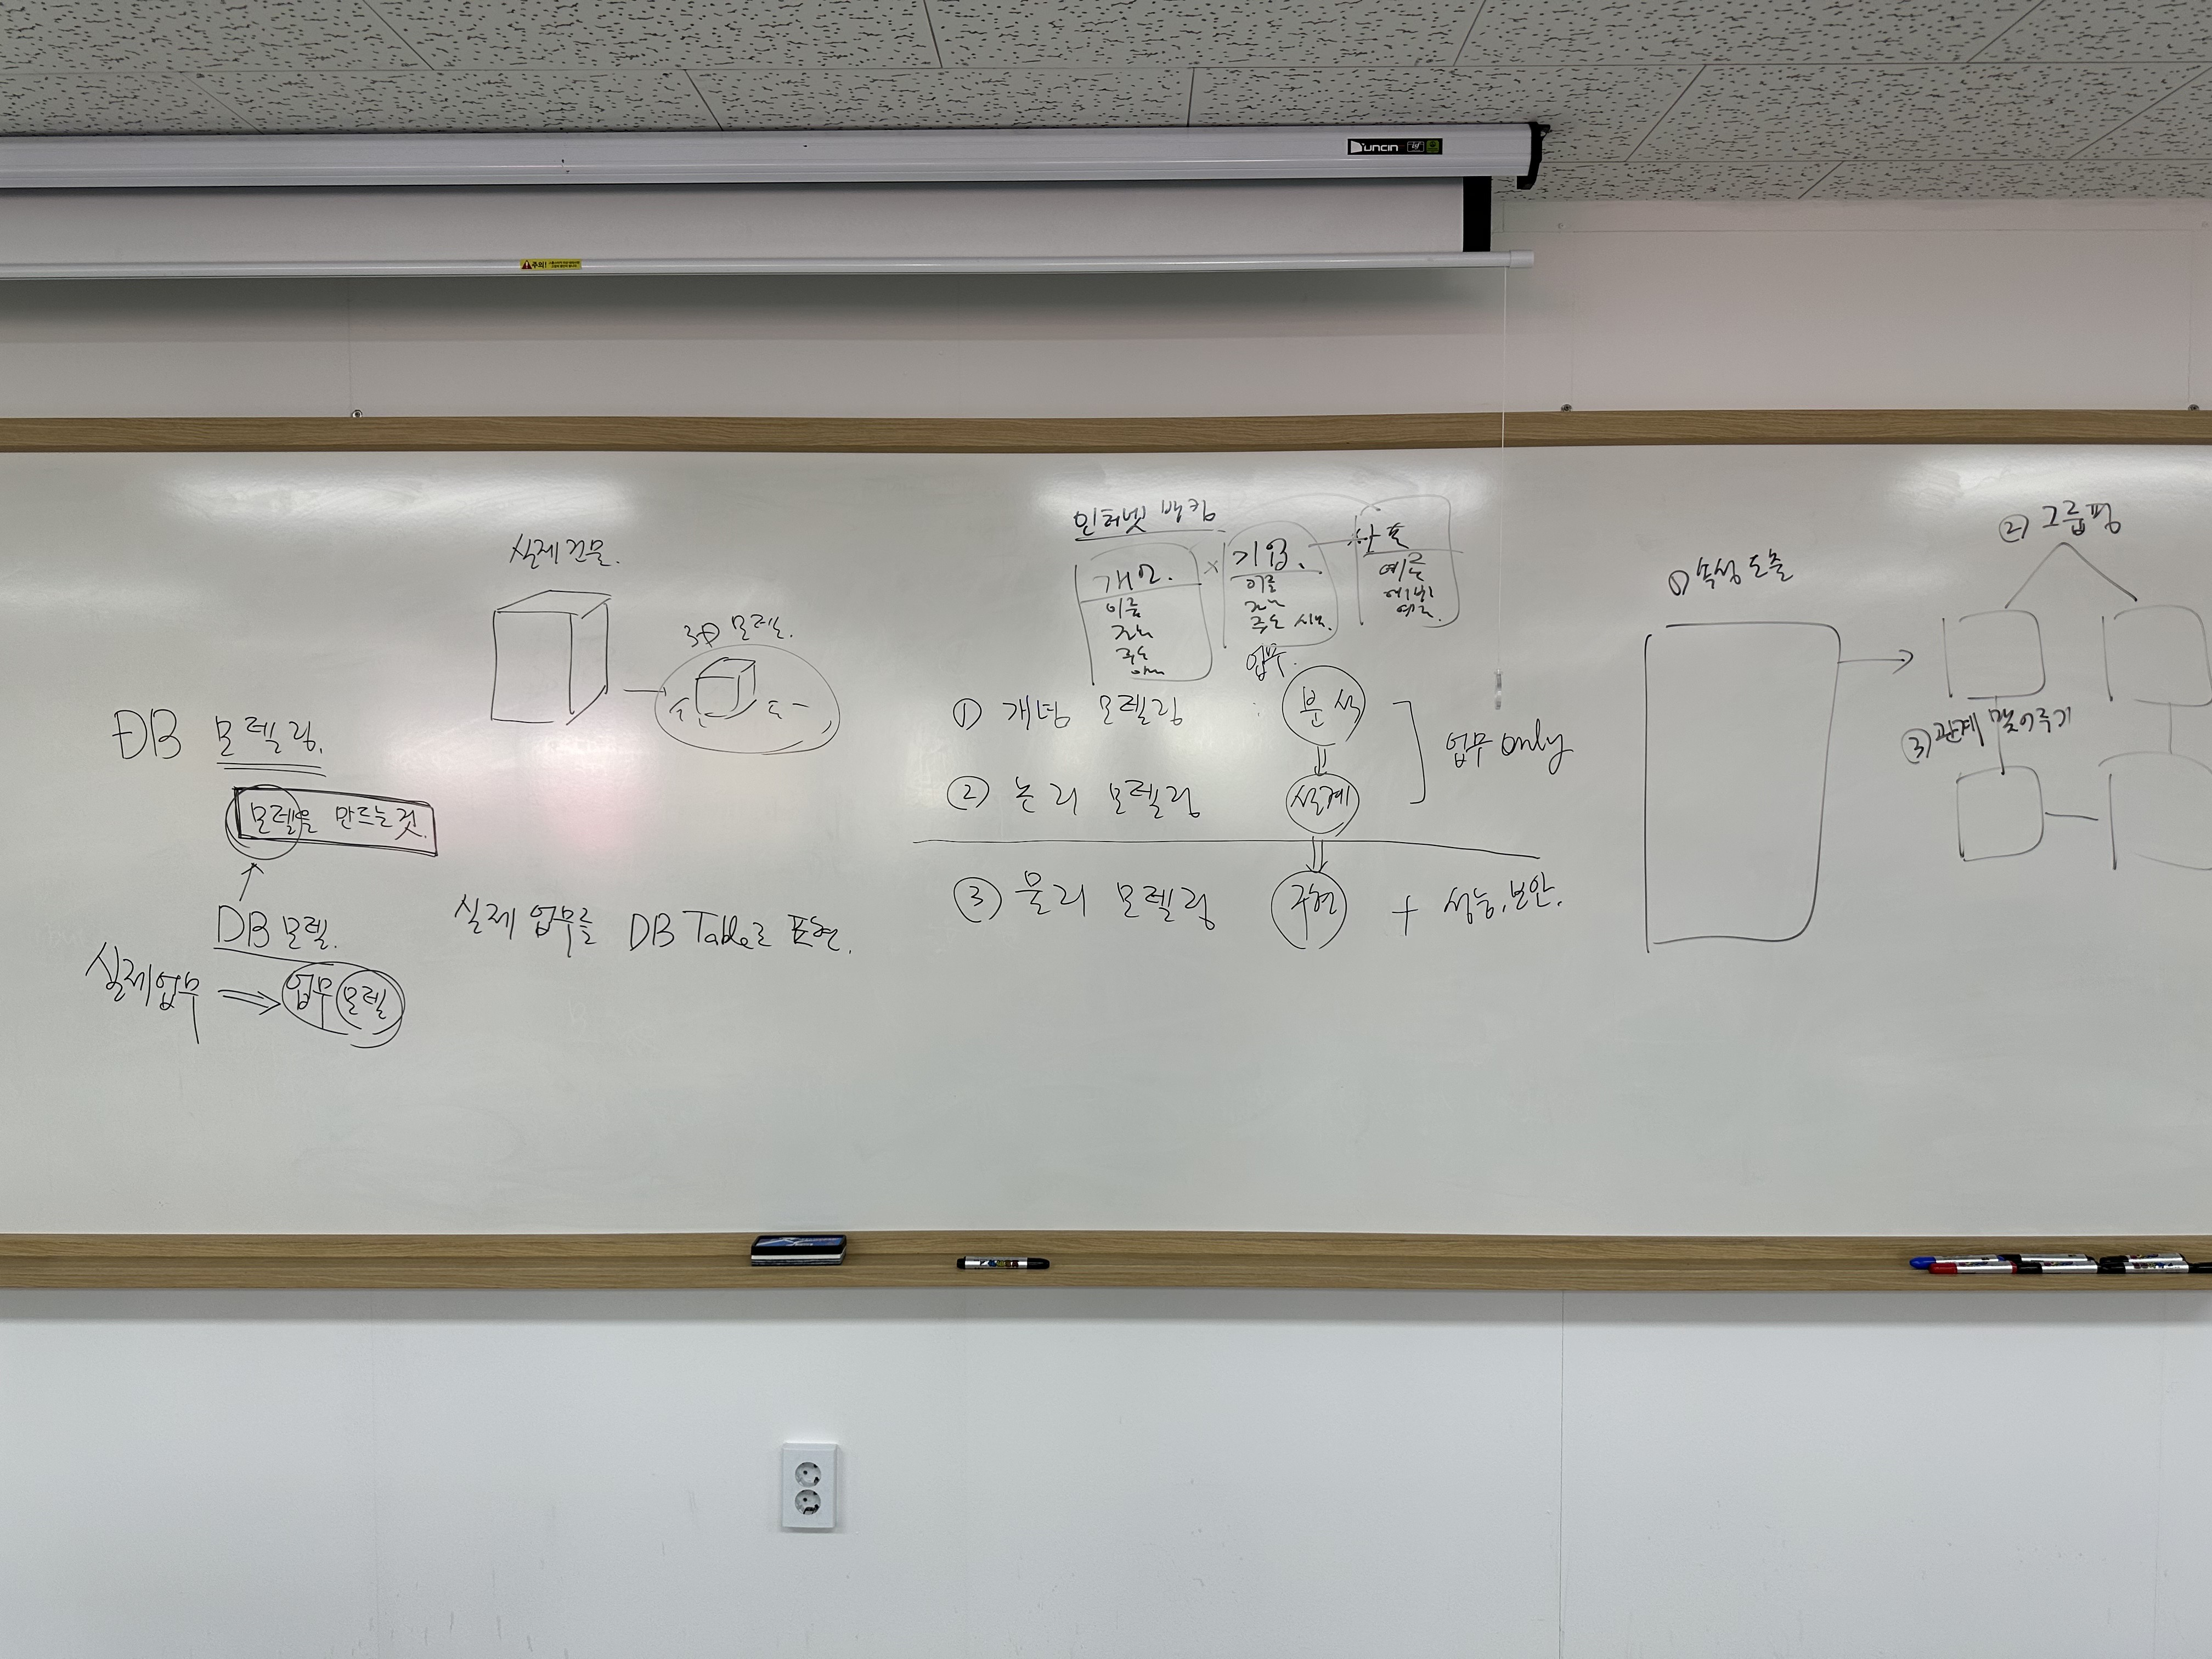 Duncin
주의!
실제 건물.
3D 모델.
DB 모델링.
모델을 만드는 것.
DB 모델.
실제업무 ⇒ 업무 모델
실제 업무를 DB Table로 표현.
인터넷 뱅킹
개인.
이름
주소
기업.
이름
주소
상품
예금
업무.
① 개념 모델링 : 분석
② 논리 모델링 설계
업무 only
③ 물리 모델링 구현 + 성능, 보안.
① 속성 도출
② 그룹핑
③ 관계 맺어주기